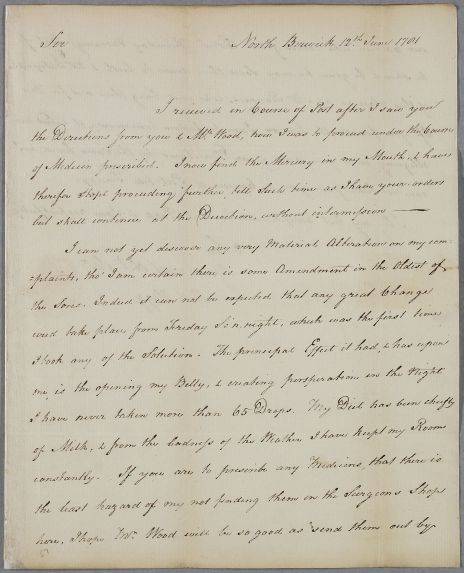 Sir North Berwick 12th June 1781
I received in Course of Post after I saw you
the Directions from you & Mr. Wood, how I was to proceed under the Course
of Medicin prescribed. I now find the Mercury in my Mouth, & have
therefor stopt proceeding further till such time as I have your orders
but shall continue at the Decoction, without intermission
I can not yet discover any very Material Alteration on my com-
=plaints, tho' I am certain there is some Amendment in the Oldest of
the Sores. Indeed it can not be expected that any great Change
coud take place from Friday Sinnight, which was the first time
I took any of the Solution. The principal Effect it had, & has upon
me, is the opening my Belly, & creating perspiration in the Night
I have never taken more than 65 Drops. My Diet has been chiefly
of Milk, & from the badness of the Weather I have kept my Room
constantly. If you are to prescribe any Medicins, that there is
the least hazard of my not finding them in the Surgeons Shops
here, I hope Mr. Wood will be so good as send them out by